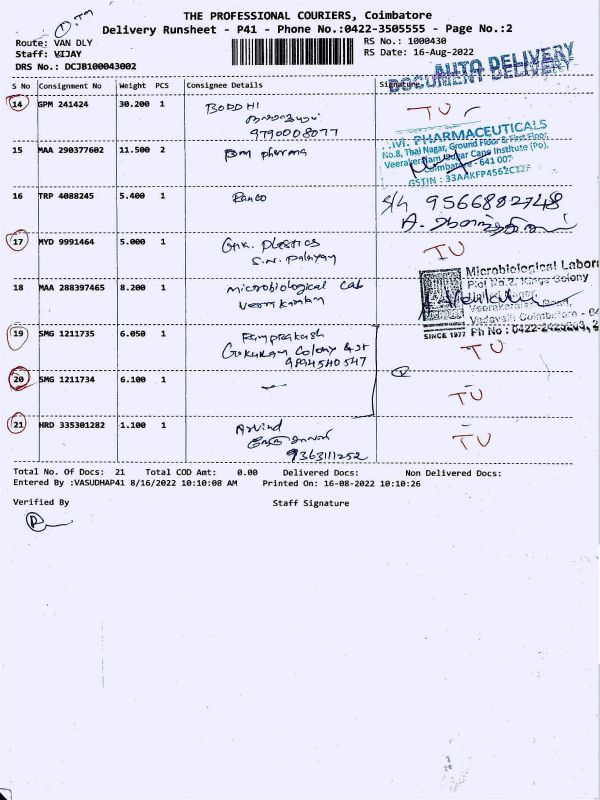 THE PROFESSIONAL COURIERS, Coimbatore
Delivery Runsheet - P41 - Phone No.:0422-3505555 - Page No.:2
Route: VAN DLY
RS No.: 1000430
Staff: VIJAY
RS Date: 16-Aug-2022
DRS No.: DCJB100043002
AUTO DELIVERY
DOCUMENT DELIVERY
S No Consignment No Weight PCS Consignee Details Signature
14 GPM 241424 30.200 1 BODDHI TU
9790008077
M. PHARMACEUTICALS
No.8, Thai Nagar, Ground Floor & First Floor,
Veerakeralam, Sugar Cane Institute (Po),
Coimbatore - 641 007
15 MAA 290377602 11.500 2 Bm pharma
16 TRP 4088245 5.400 1 Ranco 9566882748
17 MYD 9991464 5.000 1 Gnk. Plastics TU
S.N. Palayam
Microbiological Labora
Plot No.2, Kings Colony
18 MAA 288397465 8.200 1 microbiological Lab
Veerakeralam
Vadavalli Coimbatore - 64
SINCE 1977 Ph No : 0422-
19 SMG 1211735 6.050 1 Ramprakash TU
Gokulam Colony 4 st
9894540547
20 SMG 1211734 6.100 1 TU
21 HRD 335301282 1.100 1 Arvind TU
9363111252
Total No. Of Docs: 21 Total COD Amt: 0.00 Delivered Docs: Non Delivered Docs:
Entered By :VASUDHAP41 8/16/2022 10:10:08 AM Printed On: 16-08-2022 10:10:26
Verified By Staff Signature